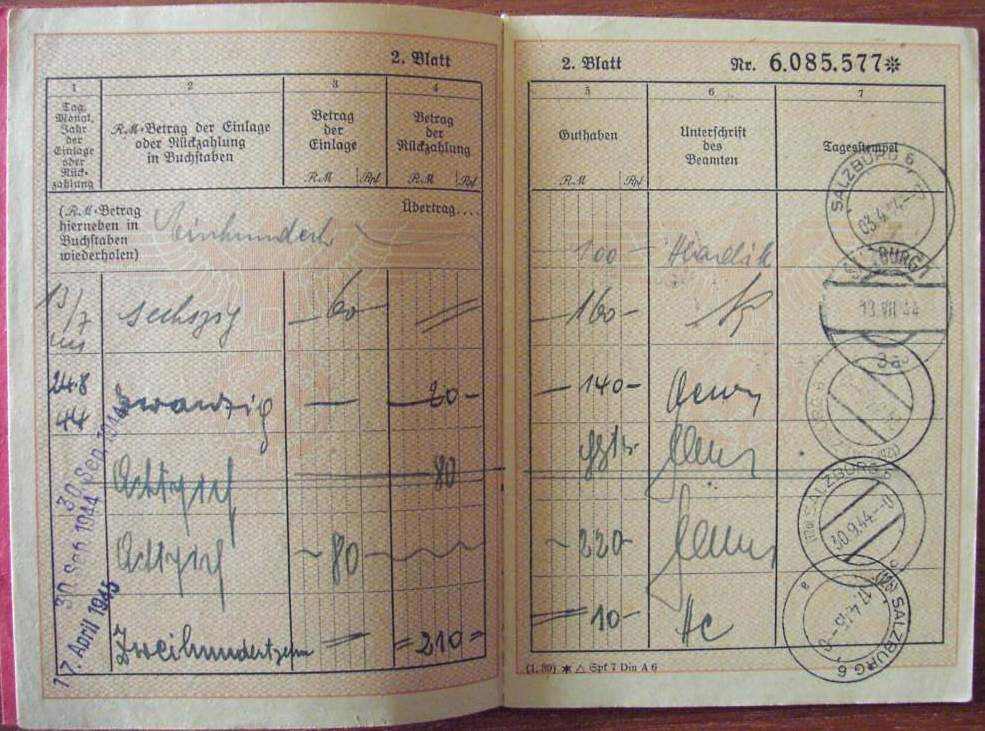 2. Blatt
1
2
3
4
Tag,
Monat,
Jahr
der
Einlage
oder
Rück-
zahlung
RM-Betrag der Einlage
oder Rückzahlung
in Buchstaben
Betrag
der
Einlage
RM Rpf
Betrag
der
Rückzahlung
RM Rpf
(RM-Betrag
hierneben in
Buchstaben
wiederholen)
Einhundert
Übertrag....
13/7
sechzig 60
24.8
44
Zwanzig — 20 -
30 Sep. 1944
Achtzig 80
30 Sep. 1944
Achtzig ~ 80
17. April 1945
Zweihundertzehn = 210 =
2. Blatt Nr. 6.085.577*
5
6
7
Guthaben
RM Rpf
Unterschrift
des
Beamten
Tagesstempel
100 —
SALZBURG 6
03.4.44
— 160 —
SALZBURG 1
13.VII.44
— 140 -
~ 220 -
SALZBURG 6
30.9.44
= 10 -
(12b) SALZBURG 6
17.4.45
(1. 39) * △ Spf 7 Din A 6